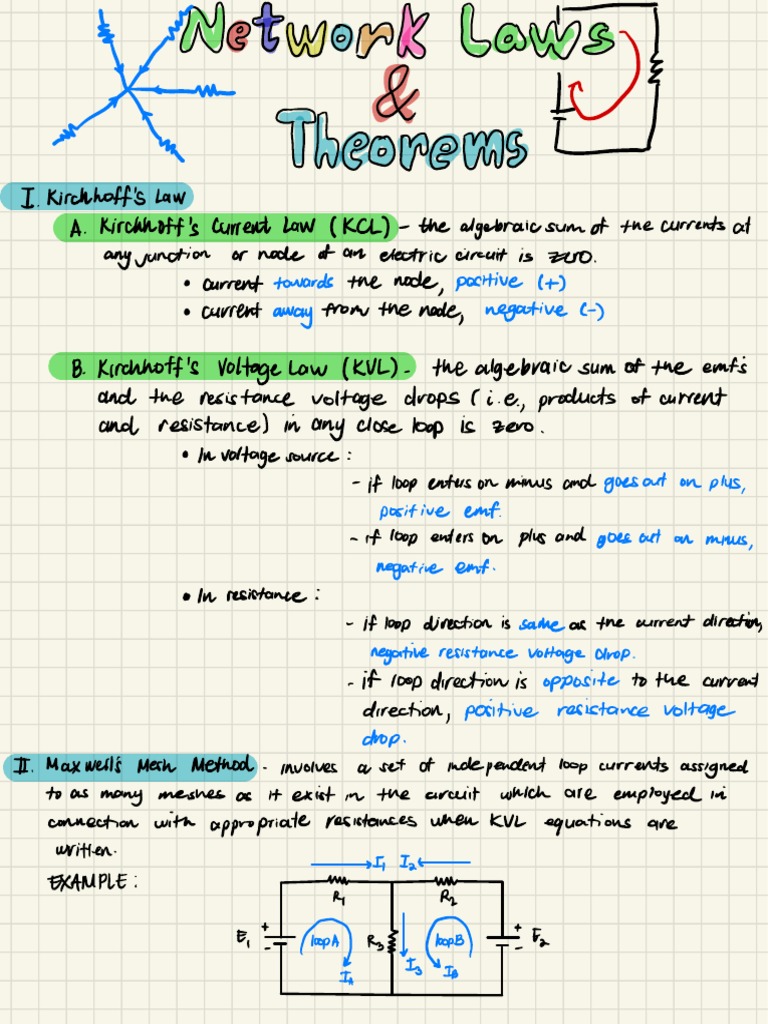 Network Laws
&
Theorems
I. Kirchhoff's Law
A. Kirchhoff's Current Law (KCL) - the algebraic sum of the currents at
any junction or node of an electric circuit is zero.
• current towards the node, positive (+)
• current away from the node, negative (-)
B. Kirchhoff's Voltage Law (KVL) - the algebraic sum of the emf's
and the resistance voltage drops (i.e., products of current
and resistance) in any close loop is zero.
• In voltage source:
- if loop enters on minus and goes out on plus,
positive emf.
- if loop enters on plus and goes out on minus,
negative emf.
• In resistance:
- if loop direction is same as the current direction,
negative resistance voltage drop.
- if loop direction is opposite to the current
direction, positive resistance voltage
drop.
II. Maxwell's Mesh Method - involves a set of independent loop currents assigned
to as many meshes as it exist in the circuit which are employed in
connection with appropriate resistances when KVL equations are
written.
EXAMPLE:
I1 I2
R1 R2
E1 + - loop A R3 loop B + - E2
IA I3 IB